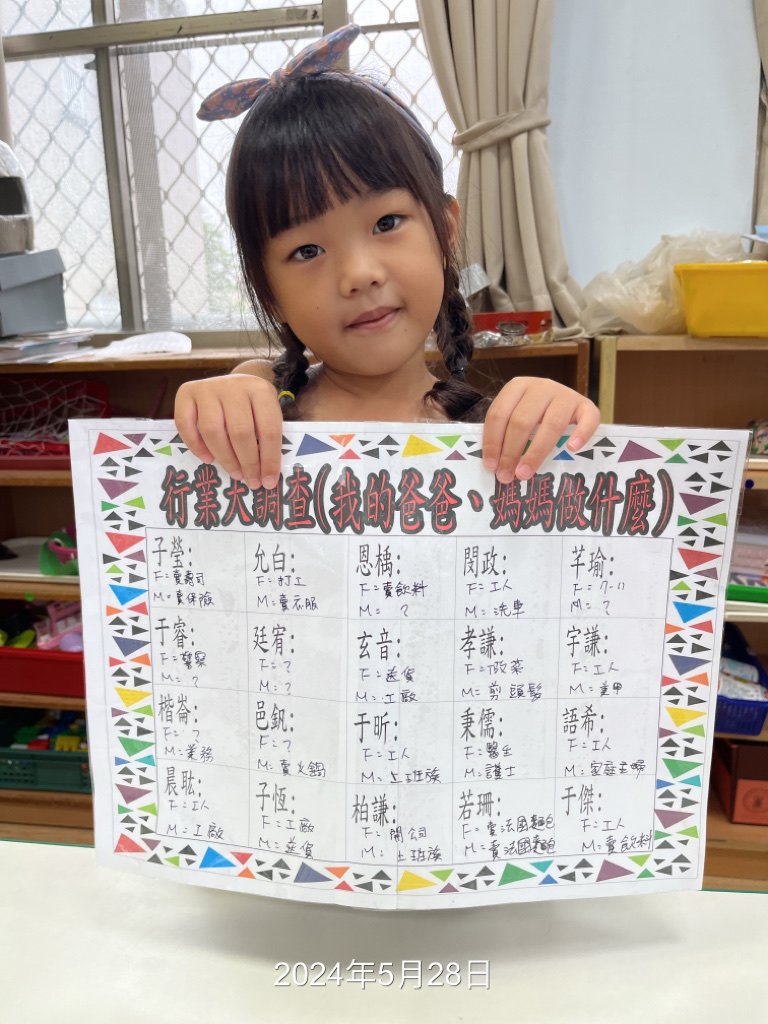 行業大調查(我的爸爸、媽媽做什麼)
子瑩: 允白: 恩楀: 閔政: 芊瑜:
F=賣壽司 F=打工 F=賣飲料 F=工人 F=7-11
M=賣保險 M=賣衣服 M= ? M=洗車 M=?
于睿: 廷宥: 玄音: 孝謙: 宇謙:
F=警察 F=? F=送貨 F=做菜 F=工人
M=? M=? M=工廠 M=剪頭髮 M=美甲
楷崙: 邑釩: 于昕: 秉儒: 語希:
F=? F=? F=工人 F=醫生 F=工人
M=業務 M=賣火鍋 M=上班族 M=護士 M=家庭主婦
晨耾: 子恆: 柏謙: 若珊: 于傑:
F=工人 F=工廠 F=開公司 F=賣法國麵包 F=工人
M=工廠 M=送貨 M=上班族 M=賣法國麵包 M=賣飲料
2024年5月28日